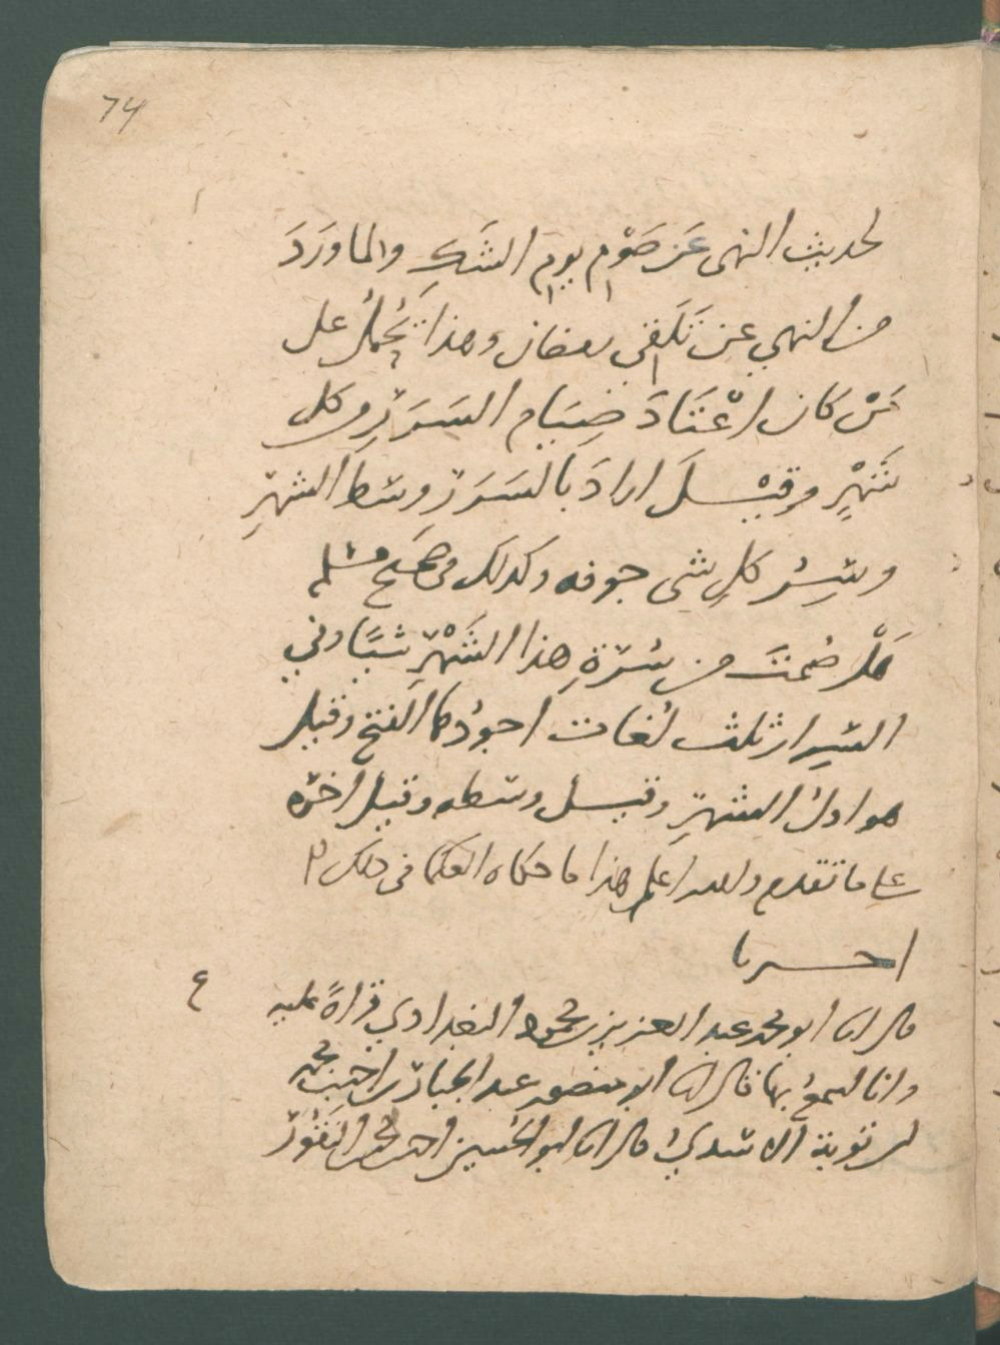 74
لحديث النهى عَن صَوْم يوم الشَكِ والما وَرَدَ
من النهي عن تَلَقى رمضان وهذا يُحْمَلُ على
مَنْ كان اعْتَادَ صِيَام السَرَرِ من كل
شَهْرٍ وقيْلَ اراد بالسَرَرِ وسط الشهرِ
وسِرُ كلِ شى جوفه وكذلك فى صحيح مسلم
هَلْ صُمتَ من سُرّةِ هذا الشَهْرِ شيًا وفي
السِرار ثلث لُغات اجودُها الفتح وقيل
هو اولُ الشهرِ وقيل وسطه وقيل اخره
على ما تقدم والله اعلم هذا ما حكاه العلما فى ذلك
اخبرنا
ع
قال انا ابو محمد عبد العزيز بن محمود البغدادي قراةً عليه
وانا اسمعُ بها قال انا ابو منصور عبد الجبار بن احمد بن محمد
بن توبة الاسديُ قال انا ابو الحسين احمد بن محمد بن النَقُور